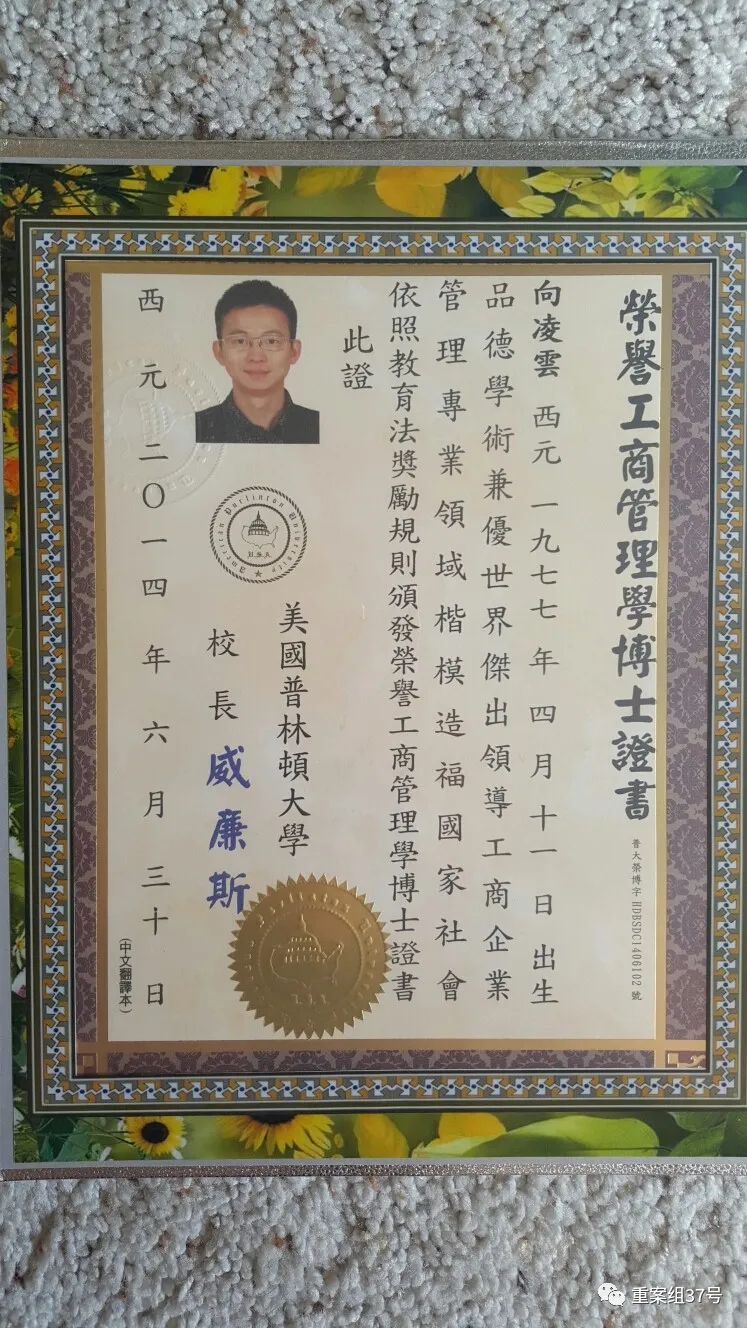 榮譽工商管理學博士證書
普大榮博字 HDBSDC1406102 號
向凌雲 西元 一九七七年四月十一日出生
品德學術兼優世界傑出領導工商企業
管理專業領域楷模造福國家社會
依照教育法獎勵規則頒發榮譽工商管理學博士證書
此證
美國普林頓大學
校長 威廉斯
American Purlinton University
U.S.A.
西元二〇一四年六月三十日
(中文翻譯本)
重案组37号